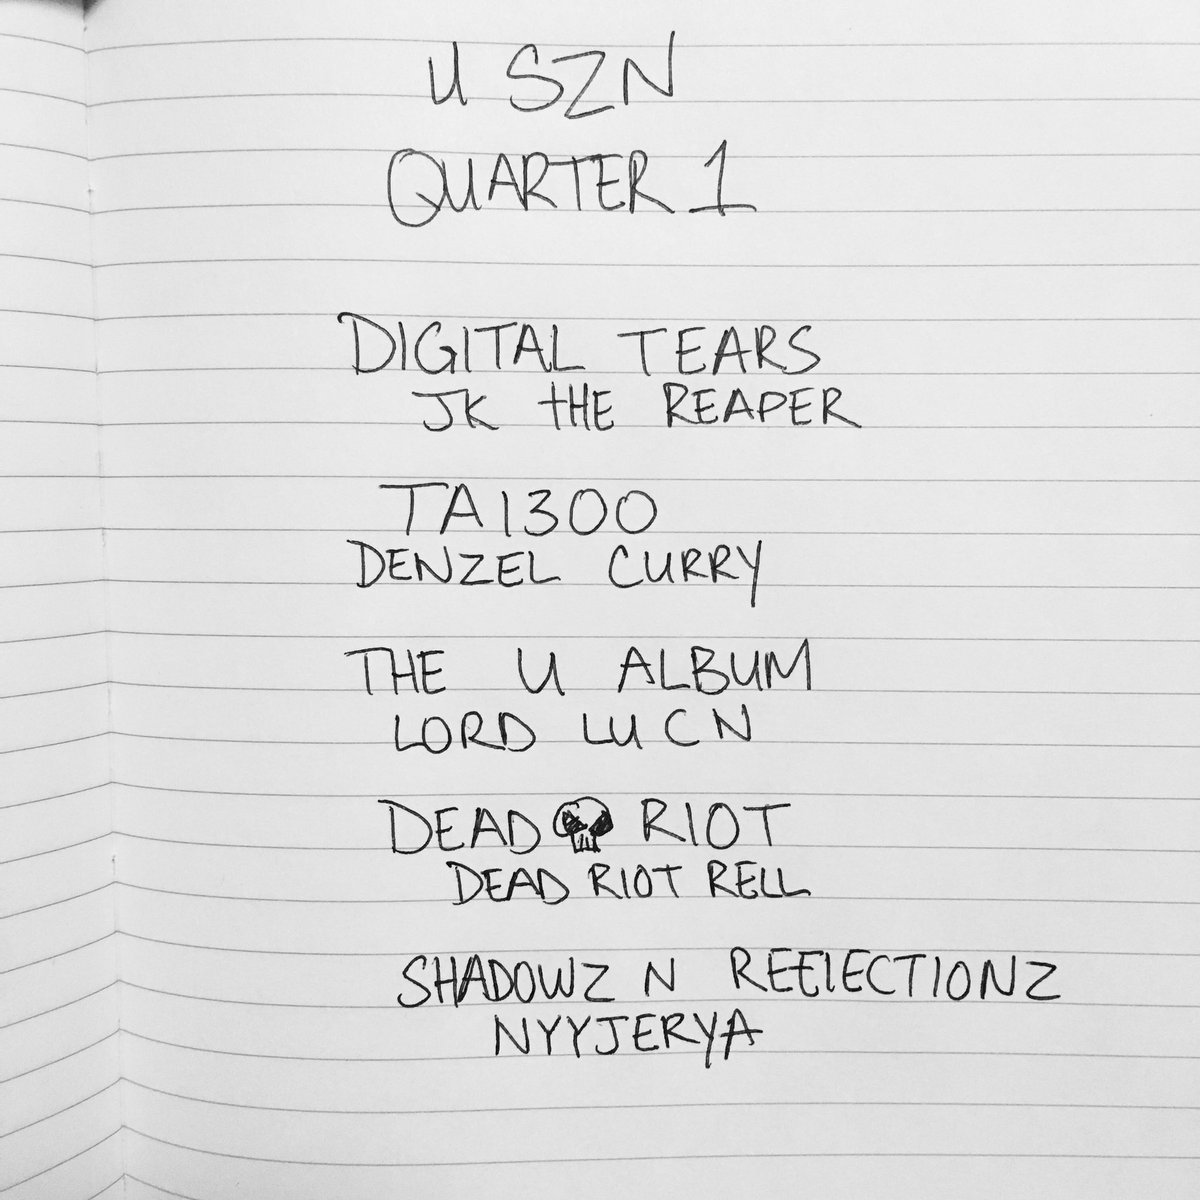 U SZN
QUARTER 1
DIGITAL TEARS
JK THE REAPER
TA1300
DENZEL CURRY
THE U ALBUM
LORD LUCN
DEAD RIOT
DEAD RIOT RELL
SHADOWZ N REFLECTIONZ
NYYJERYA